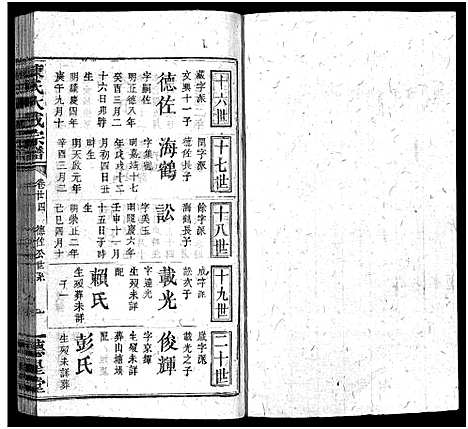 十六世
藏字派
文興十一子
德佐
字嗣佐
明正德八年
癸酉三月二
十六日卯時
生
明隆慶四年
庚午九月十
十七世
閏字派
德佐長子
海鶴
字集
明嘉靖十七
年戊戌十二
月初四日丑
時生
明天啟元年
辛酉三月二
十八世
餘字派
海鶴長子
訟
字美玉
明隆慶六年
壬申十一月
十五日子時
生
明崇正二年
己巳四月十
十九世
成字派
訟次子
載光
字達光
生歿未詳
配
賴氏
生歿未詳葬
子一
二十世
歲字派
載光之子
俊輝
字京輝
生歿未詳
葬山塘塅
配
彭氏
生歿未詳葬
陳氏大成宗譜
卷廿四
德佐公世系
德星堂